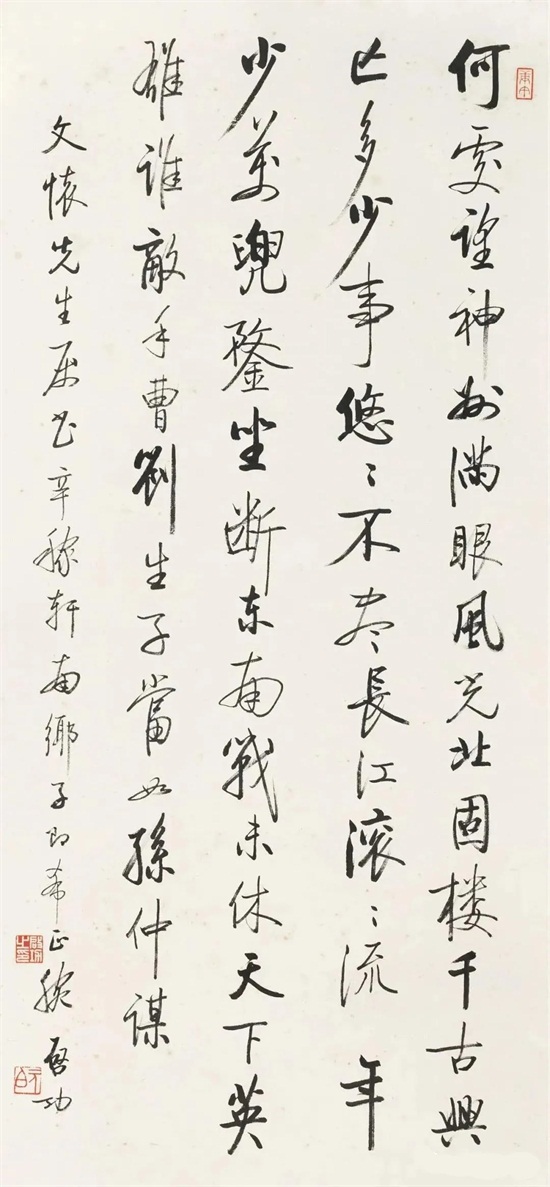 何處望神州滿眼風光北固楼千古興
亡多少事悠〻不盡長江滚〻流年
少萬兜鍪坐断東南戰未休天下英
雄誰敵手曹劉生子當如孫仲謀
文懷先生属書辛稼軒南鄉子即希正腕 啓功
啓功之印
元白